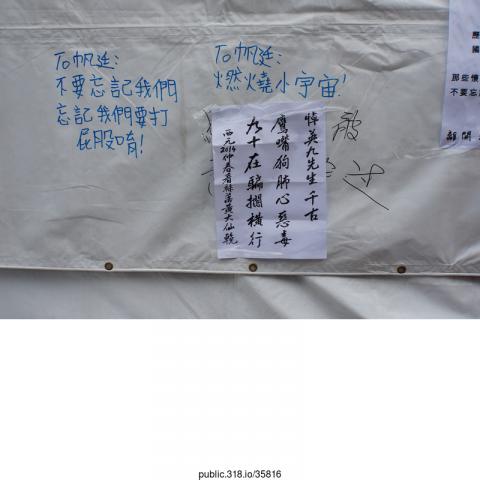 To帆廷:
不要忘記我們
忘記我們要打
屁股唷!
To帆廷:
燃燒小宇宙!
悼英九先生千古
鷹嘴狗肺心惡毒
九十在騙擱橫行
西元2014仲春
黃大仙
被
應
國
那些懷
不要忘
離開
public.318.io/35816